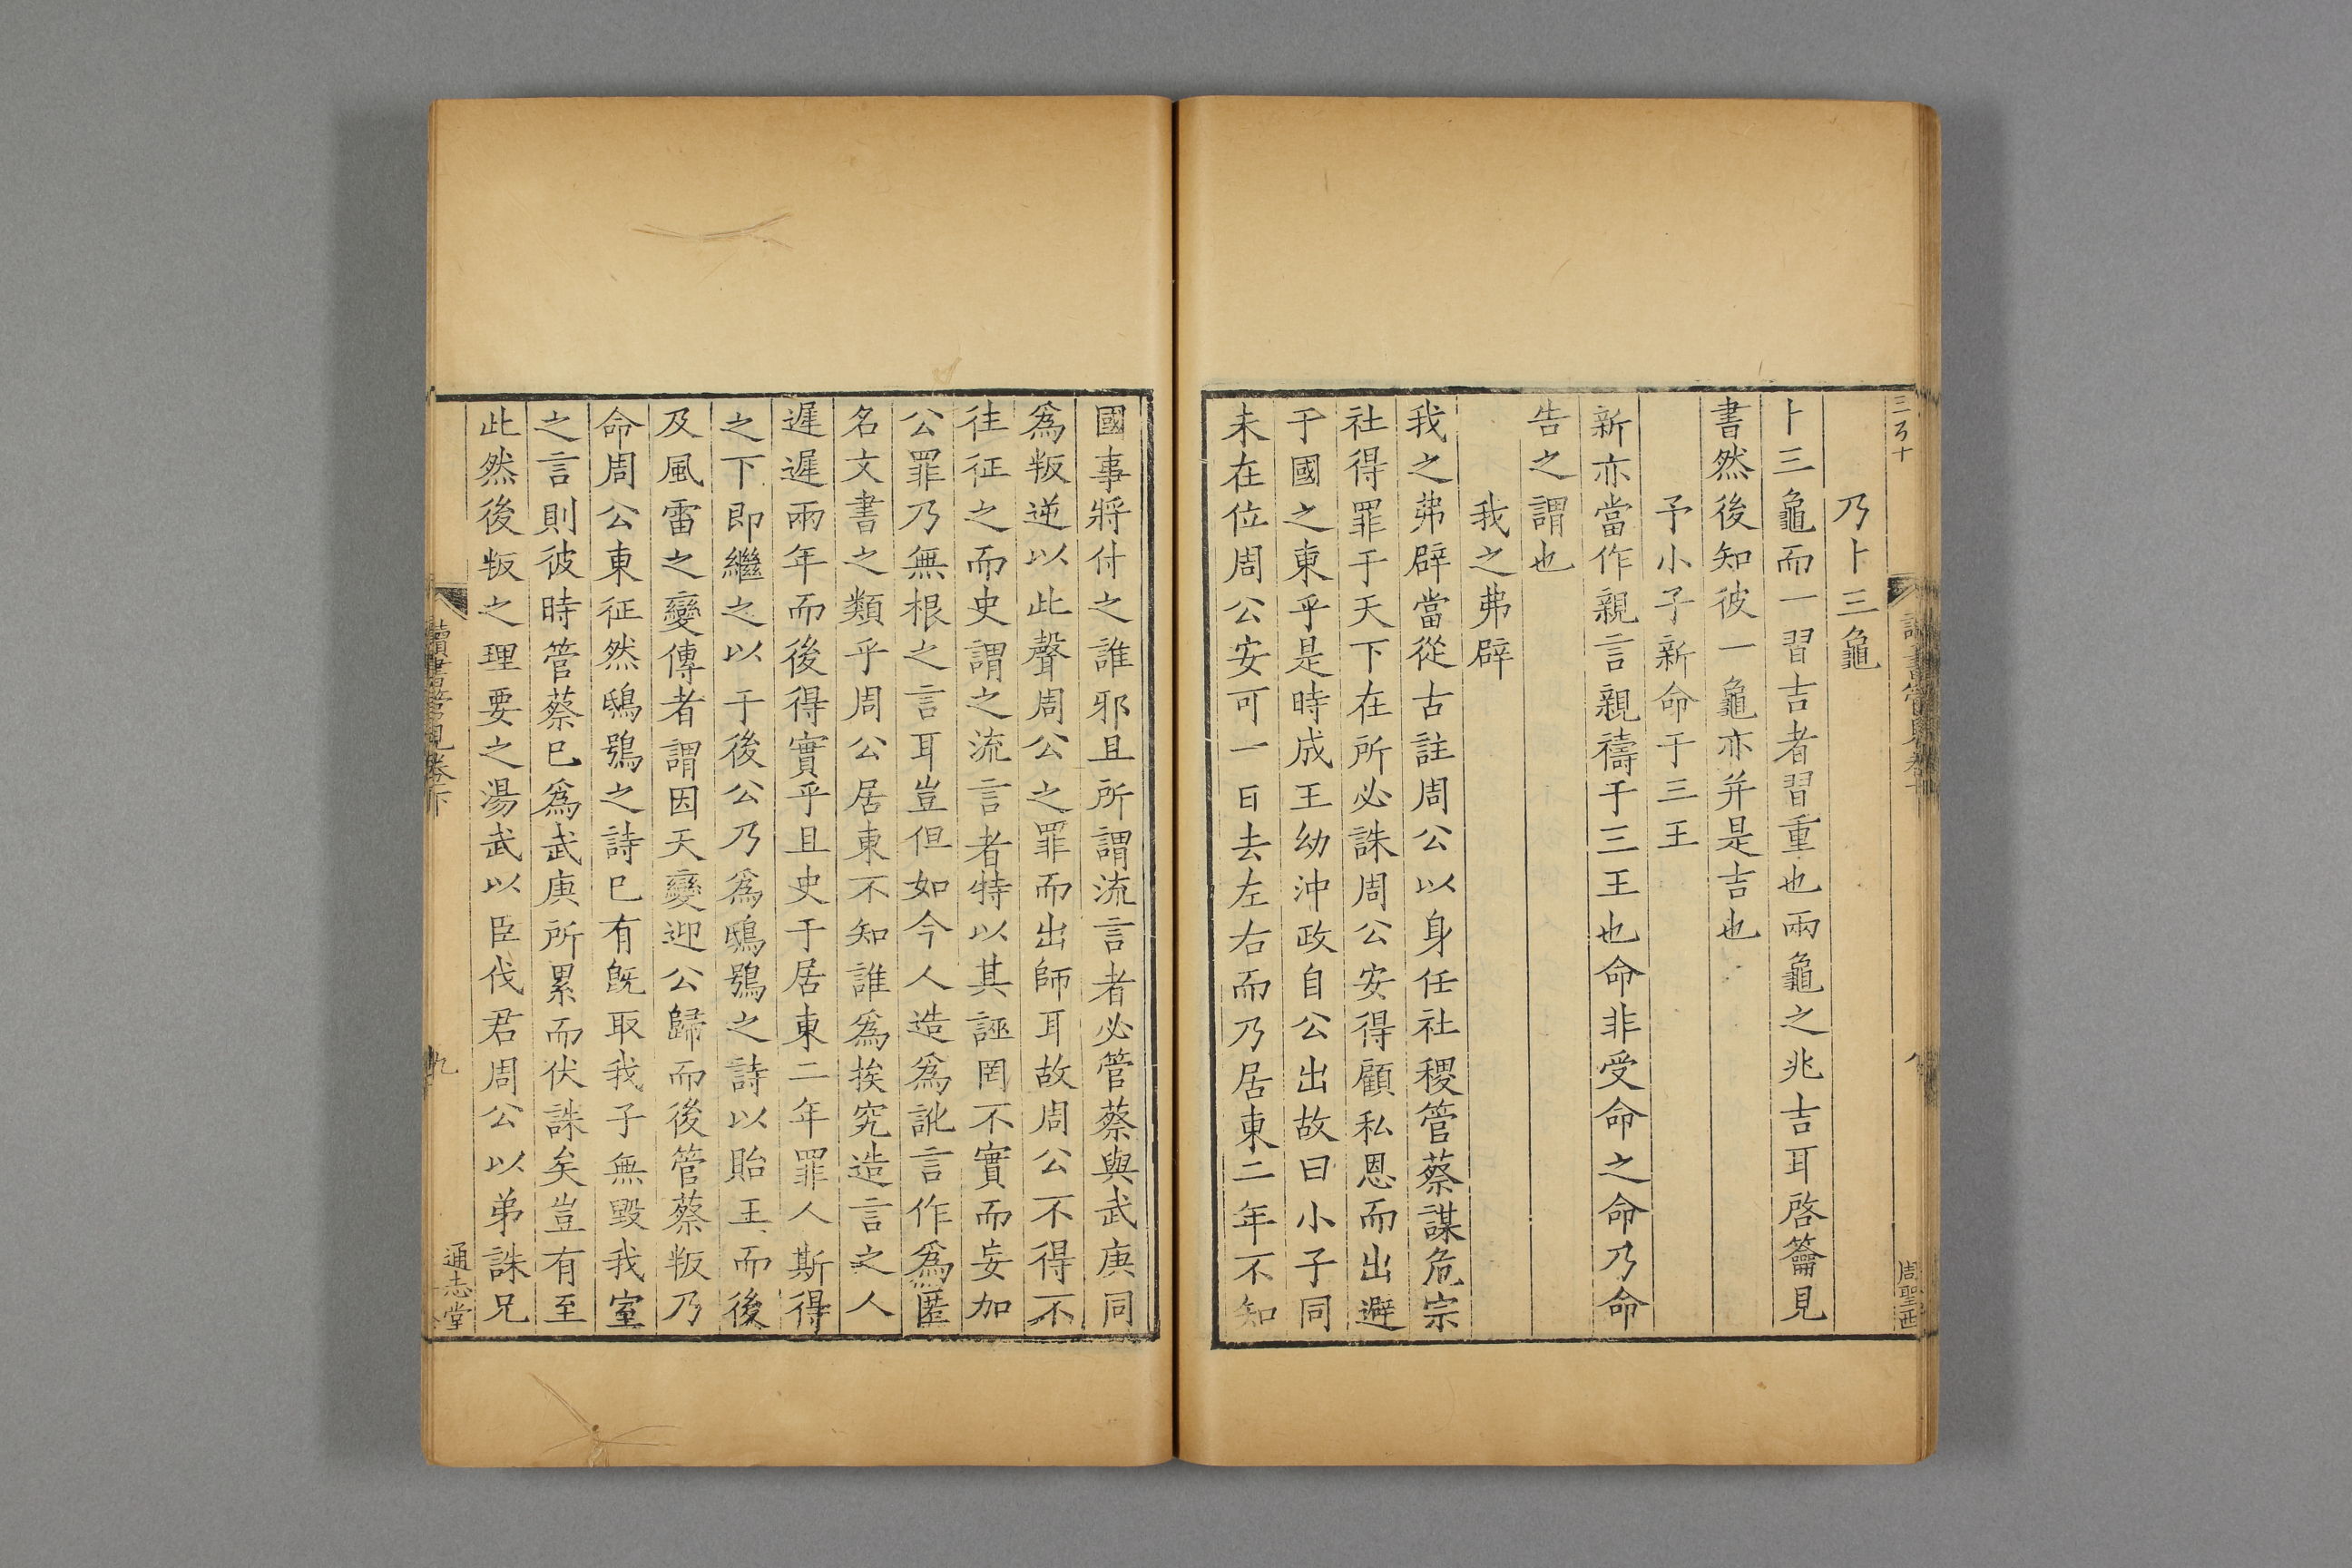 三百十
乃卜三龜
卜三龜而一習吉者習重也兩龜之兆吉耳啓籥見
書然後知彼一龜亦并是吉也
予小子新命于三王
新亦當作親言親禱于三王也命非受命之命乃命
告之謂也
我之弗辟
我之弗辟當從古註周公以身任社稷管蔡謀危宗
社得罪于天下在所必誅周公安得顧私恩而出避
于國之東乎是時成王幼沖政自公出故曰小子同
未在位周公安可一日去左右而乃居東二年不知
國事將付之誰邪且所謂流言者必管蔡與武庚同
爲叛逆以此聲周公之罪而出師耳故周公不得不
往征之而史謂之流言者特以其誣罔不實而妄加
公罪乃無根之言耳豈但如今人造爲訛言作爲匿
名文書之類乎周公居東不知誰爲挨究造言之人
遲遲兩年而後得實乎且史于居東二年罪人斯得
之下即繼之以于後公乃爲鴟鴞之詩以貽王而後
及風雷之變傳者謂因天變迎公歸而後管蔡叛乃
命周公東征然鴟鴞之詩已有旣取我子無毀我室
之言則彼時管蔡已爲武庚所累而伏誅矣豈有至
此然後叛之理要之湯武以臣伐君周公以弟誅兄
讀書管見卷下
九
通志堂